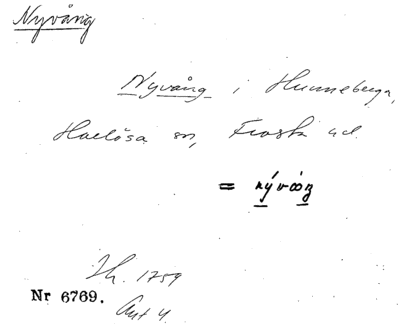 Nyvång
Nyvång i Hunneberga,
Harlösa sn, Frosta hd.
= nývåŋ
Jh. 1759
Nr 6769.
Ant 4